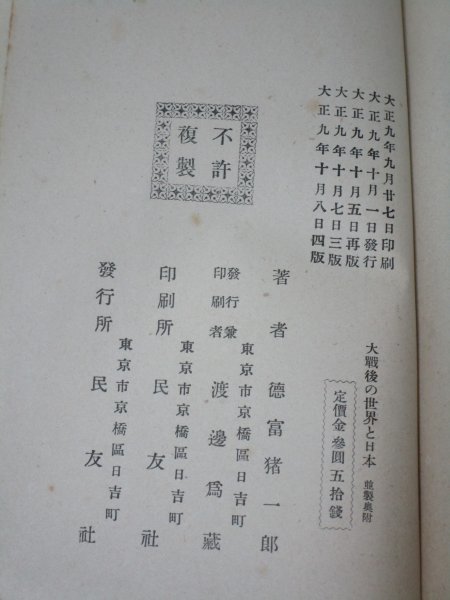 大正九年九月廿七日印刷
大正九年十月一日發行
大正九年十月五日再版
大正九年十月七日三版
大正九年十月八日四版
不許
複製
大戰後の世界と日本 並製奧附
定價金參圓五拾錢
著者 德富猪一郎
東京市京橋區日吉町
發行兼
印刷者 渡邊爲藏
東京市京橋區日吉町
印刷所 民友社
東京市京橋區日吉町
發行所 民友社